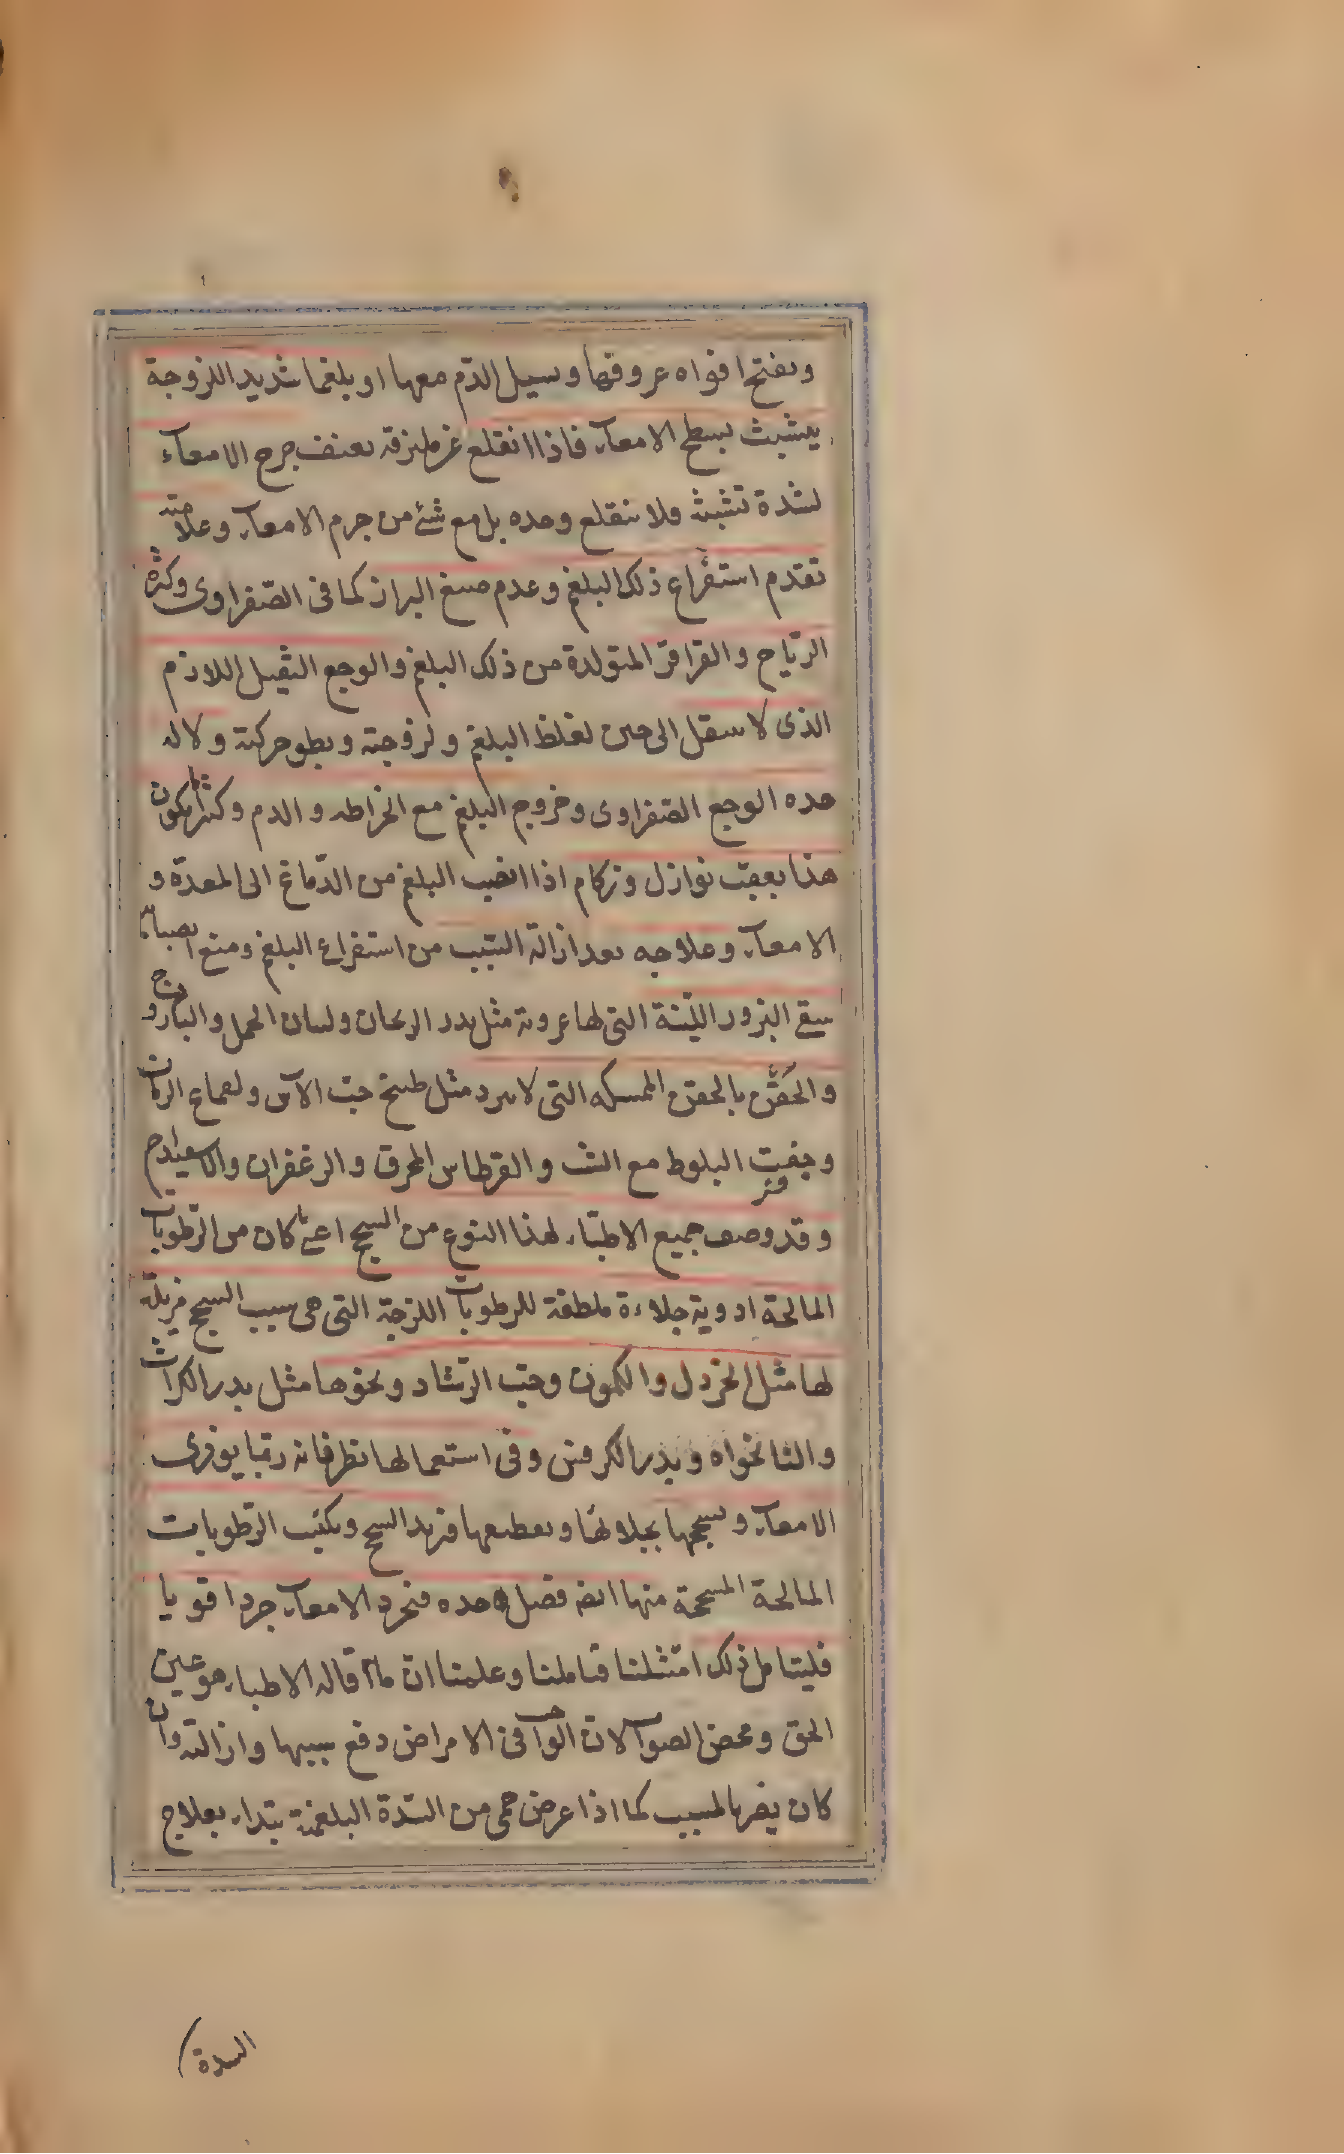 وىفتح افواه عروقها وىسيل الدّم معها او بلغما شديد اللزوجة
يتشبث بسطح الامعاء فاذا انقلع عن ملتزقه بعنف جرح الامعاء
لشدة تشبثه ولا ىنقلع وحده بل مع شئ من جرم الامعاء وعلامته
تقدم استفراغ ذلك البلغم وعدم صبغ البراز كما فى الصّفراوى وكثرة
الرّياح والقراقر المتولدة من ذلك البلغم والوجع الثقيل اللازم
الذى لا ىنتقل الى حين لغلظ البلغم ولزوجته وبطو حركته ولا له
حده الوجع الصّفراوى وخروج البلغم مع الخراطه والدم وكثيرا ما يكون
هذا بعقب نوازل وزكام اذا انصب البلغم من الدّماغ الى المعدة و
الامعاء وعلاجه بعد ازالة السّبب من استفراغ البلغم ومنع انصبابه
سقى البزور الليّنة التى لها غروية مثل بذر الريحان ولسان الحمل والبارتج و
والحُقَن بالحقن الممسكه التى لا تبرد مثل طبيخ حبّ الآس واقماع الرمان
وجفت البلوط مع الشب والقرطاس المحرق والزعفران والاسفيداج
وقد وصف جميع الاطبّاء لهذا النوع من السحج اعنى ما كان من الرّطوبات
المالحة ادوية جلاءة ملطفة للرطوبات اللزجة التى هى سبب السحج مزيلة
لها مثل الخردل والكمون وحبّ الرّشاد ونحوها مثل بذر الكراث
والنانخواه وبذر الكرفس وفى استعمالها نظر فانه ربّما يوذى
الامعاء وىسحجها بجلائها وىقطيعها فىزيد السحج ويكثب الرّطوبات
المالحة المسحجة منها ايضا فضل حده فىجرد الامعاء جردا قويا
فليتامل ذلك امتثلنا فتاملنا وعلمنا انّ ما قاله الاطباء هو عين
الحق ومحض الصواب لانّ الواجب فى الامراض دفع سببها وازالته وان
كان يضر بالمسبب كما اذا عرض حمى من السّدة البلغميّة يبتداء بعلاج
السدة